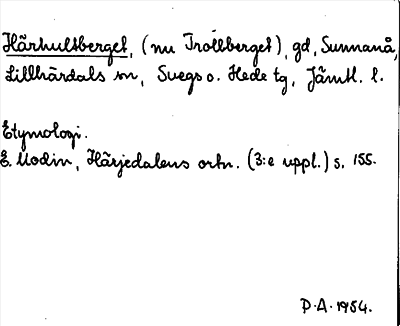 Härhultberget, (nu Trollberget), gd, Sunnanå,
Lillhärdals sn, Svegs o. Hede tg, Jämtl. l.
Etymologi.
E. Modin, Härjedalens ortn. (3:e uppl.) s. 155.
D.A. 1954.